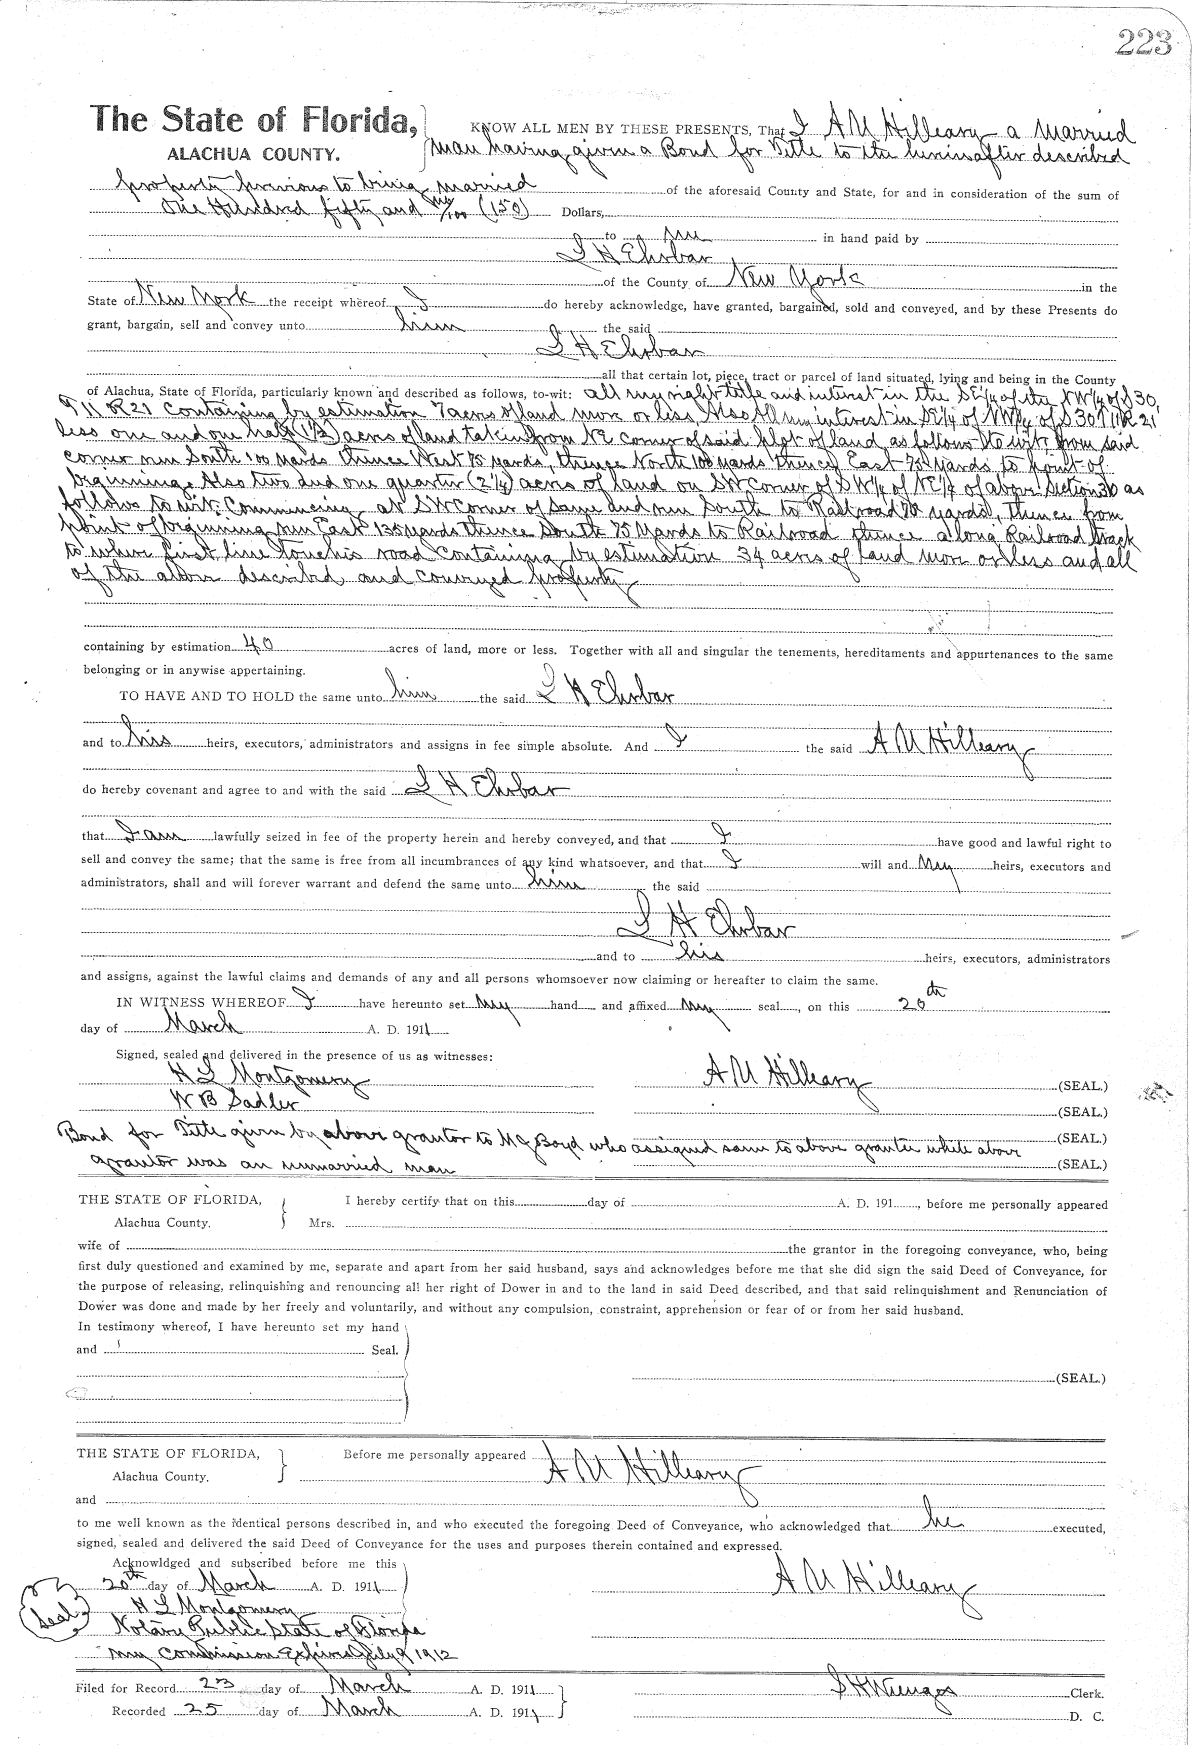 223
The State of Florida, KNOW ALL MEN BY THESE PRESENTS, That I A M Hilleary a married
ALACHUA COUNTY. man having given a Bond for Title to the hereinafter described
property previous to being married of the aforesaid County and State, for and in consideration of the sum of
One Hundred fifty and no/100 (150) Dollars,
to me in hand paid by
L H Ehrbar
of the County of New York in the
State of New York the receipt whereof I do hereby acknowledge, have granted, bargained, sold and conveyed, and by these Presents do
grant, bargain, sell and convey unto him the said
L H Ehrbar
all that certain lot, piece, tract or parcel of land situated, lying and being in the County
of Alachua, State of Florida, particularly known and described as follows, to-wit: all my right title and interest in the SE¼ of the NW¼ of S 30,
T 11 R 21 Containing by estimation 7 acres of land more or less, Also All my interest in SE¼ of NW¼ of S 30 T 11 R 21
less one and one half (1½) acres of land taken from NE corner of said plot of land as follows to wit; from said
corner run South 100 yards thence West 75 yards, thence North 100 yards thence East 75 yards to point of
beginning. Also two and one quarter (2¼) acres of land on SW Corner of SW¼ of NE¼ of above Section 30 as
follows to wit: Commencing at SW Corner of same and run South to Railroad yards, thence from
point of beginning run East 135 yards thence South 75 yards to Railroad thence along Railroad track
to where first line touches road containing by estimation 34 acres of land more or less and all
of the above described and conveyed property
containing by estimation 40 acres of land, more or less. Together with all and singular the tenements, hereditaments and appurtenances to the same
belonging or in anywise appertaining.
TO HAVE AND TO HOLD the same unto him the said L H Ehrbar
and to his heirs, executors, administrators and assigns in fee simple absolute. And I the said A M Hilleary
do hereby covenant and agree to and with the said L H Ehrbar
that I am lawfully seized in fee of the property herein and hereby conveyed, and that I have good and lawful right to
sell and convey the same; that the same is free from all incumbrances of any kind whatsoever, and that I will and My heirs, executors and
administrators, shall and will forever warrant and defend the same unto him the said
L H Ehrbar
and to his heirs, executors, administrators
and assigns, against the lawful claims and demands of any and all persons whomsoever now claiming or hereafter to claim the same.
IN WITNESS WHEREOF I have hereunto set My hand and affixed My seal, on this 20th
day of March A. D. 1911
Signed, sealed and delivered in the presence of us as witnesses:
H L Montgomery A M Hilleary (SEAL.)
W B Sadler (SEAL.)
Bond for Title given by above grantor to M J Boyd who assigned same to above grantee while above (SEAL.)
grantor was an unmarried man (SEAL.)
THE STATE OF FLORIDA, I hereby certify that on this day of A. D. 191 , before me personally appeared
Alachua County. Mrs.
wife of the grantor in the foregoing conveyance, who, being
first duly questioned and examined by me, separate and apart from her said husband, says and acknowledges before me that she did sign the said Deed of Conveyance, for
the purpose of releasing, relinquishing and renouncing all her right of Dower in and to the land in said Deed described, and that said relinquishment and Renunciation of
Dower was done and made by her freely and voluntarily, and without any compulsion, constraint, apprehension or fear of or from her said husband.
In testimony whereof, I have hereunto set my hand
and Seal.
(SEAL.)
THE STATE OF FLORIDA, Before me personally appeared A M Hilleary
Alachua County.
and
to me well known as the identical persons described in, and who executed the foregoing Deed of Conveyance, who acknowledged that he executed,
signed, sealed and delivered the said Deed of Conveyance for the uses and purposes therein contained and expressed.
Acknowldged and subscribed before me this
20th day of March A. D. 1911 A M Hilleary
Seal H L Montgomery
Notary Public State of Florida
My Commission Expires July 9 1912
Filed for Record 23 day of March A. D. 1911 Clerk.
Recorded 25 day of March A. D. 1911 D. C.